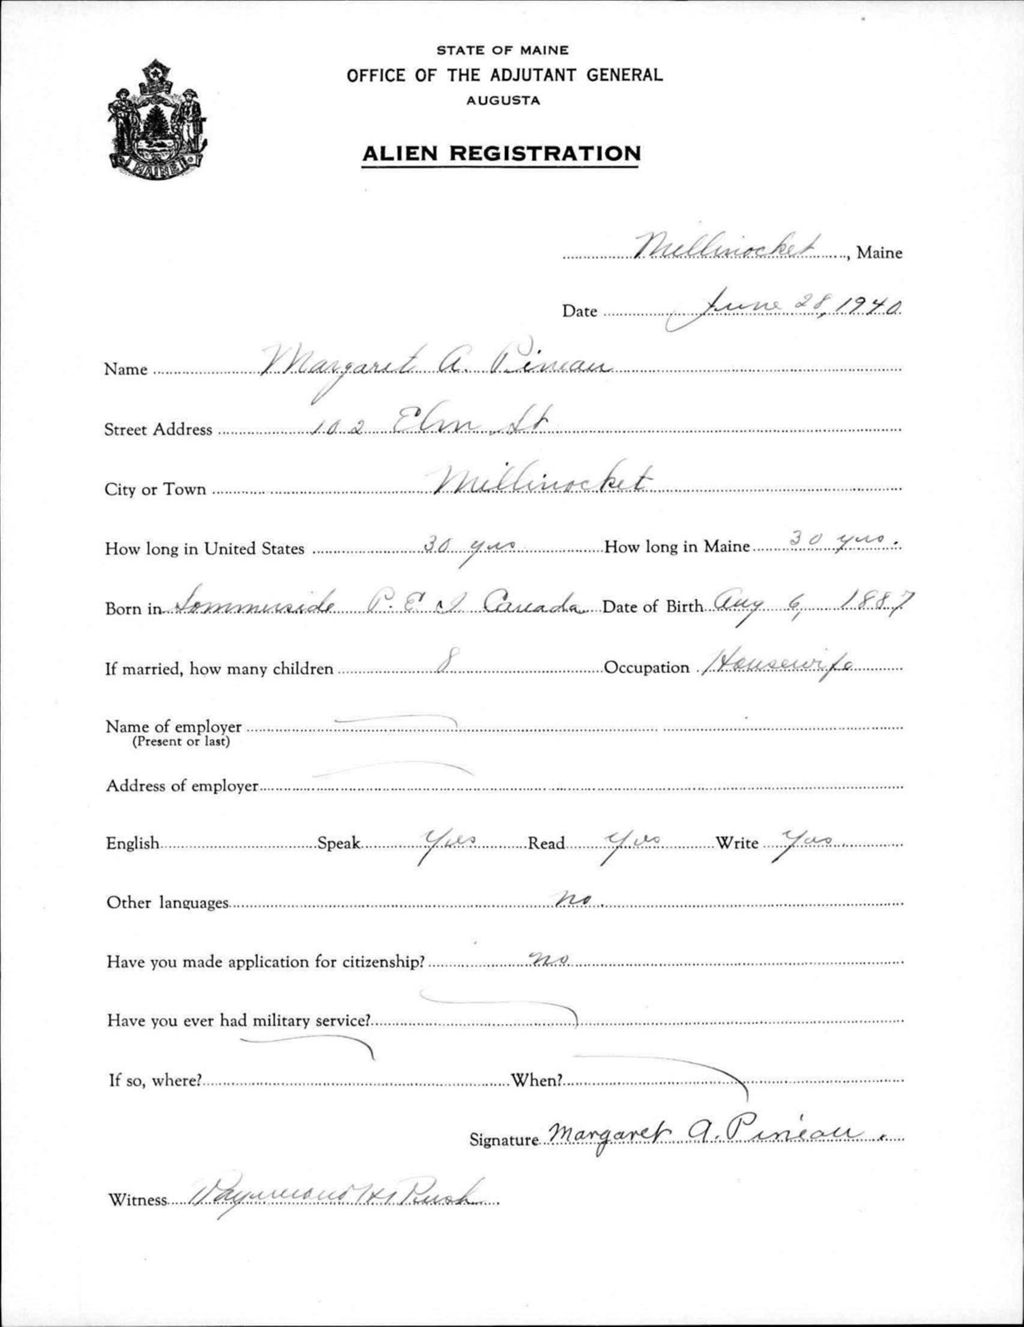 STATE OF MAINE
OFFICE OF THE ADJUTANT GENERAL
AUGUSTA
ALIEN REGISTRATION
MAINE
Millinocket, Maine
Date June 28, 1940
Name Margaret A. Pineau
Street Address 102 Elm St
City or Town Millinocket
How long in United States 30 yrs How long in Maine 30 yrs.
Born in Sommerside P. E I Canada Date of Birth Aug 6, 1887
If married, how many children 8 Occupation Housewife
Name of employer
(Present or last)
Address of employer
English Speak Yes Read Yes Write Yes
Other languages no.
Have you made application for citizenship? no
Have you ever had military service?
If so, where? When?
Signature Margaret A. Pineau.
Witness Raymond H Rush